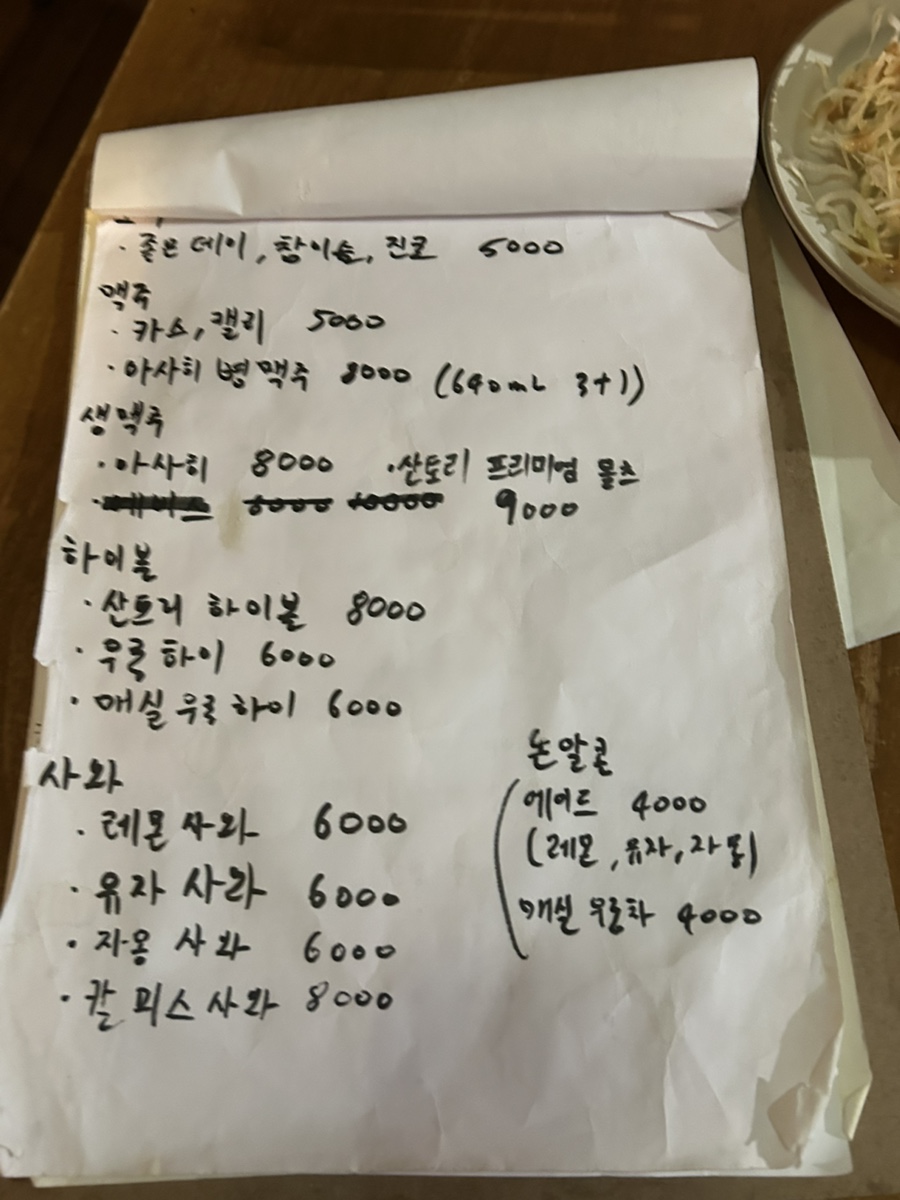 · 좋은데이, 참이슬, 진로 5000
맥주
· 카스, 캘리 5000
· 아사히 병맥주 8000 (640mL 3+1)
생맥주
· 아사히 8000 · 산토리 프리미엄 몰츠
9000
하이볼
· 산토리 하이볼 8000
· 우롱하이 6000
· 매실 우롱하이 6000
사와
· 레몬 사와 6000
· 유자 사와 6000
· 자몽 사와 6000
· 칼피스 사와 8000
논알콜
에이드 4000
(레몬, 유자, 자몽)
매실 우롱차 4000